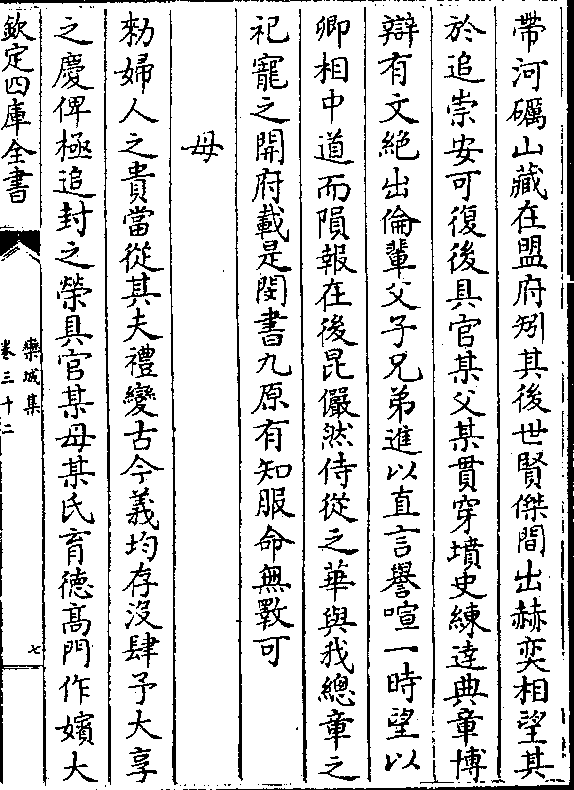 帶河礪山藏在盟府矧其後世賢傑間出赫奕相望其
於追崇安可復後具官某父某貫穿墳史練達典章博
辯有文絶出倫輩父子兄弟進以直言譽喧一時望以
卿相中道而隕報在後昆儼然侍從之華與我總章之
祀寵之開府載是閔書九原有知服命無斁可
母
勑婦人之貴當從其夫禮變古今義均存沒肆予大享
之慶俾極追封之榮具官某母某氏育德髙門作嬪大
欽定四庫全書
欒城集
卷三十二
七